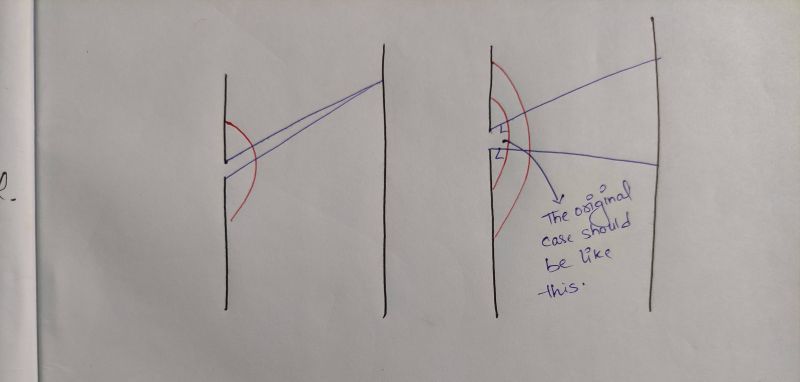 l.
The original
case should
be like
this.